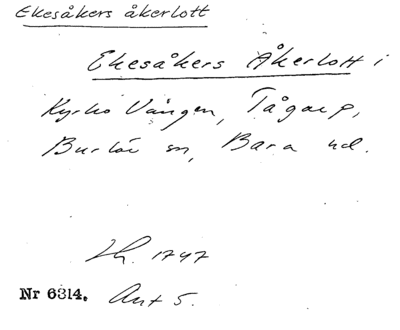 Ekesåkers åkerlott
Ekesåkers Åkerlott i
Kyrko Vången, Tågarp,
Burlöv sn, Bara hd.
Lh. 1747
Nr 6314. Ant 5.